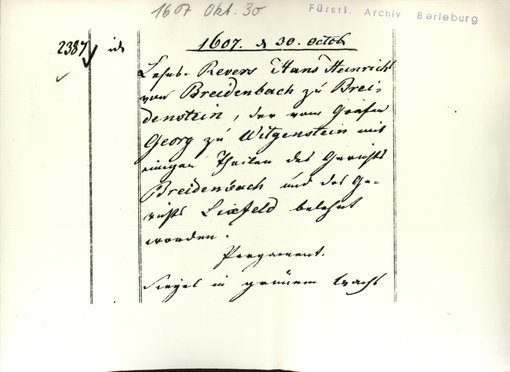 1607 Okt. 30
Fürstl. Archiv Berleburg
2387 id
1607. d 30. Octob
Lehns-Revers Hans Heinrich
von Breidenbach zu Brei-
denstein, der vom Grafen
Georg zu Witgenstein mit
einigen Theilen des Gerichts
Breidenbach und des Ge-
richts Lixfeld belehnt
worden.
Pergament.
Siegel in grünem Wachs